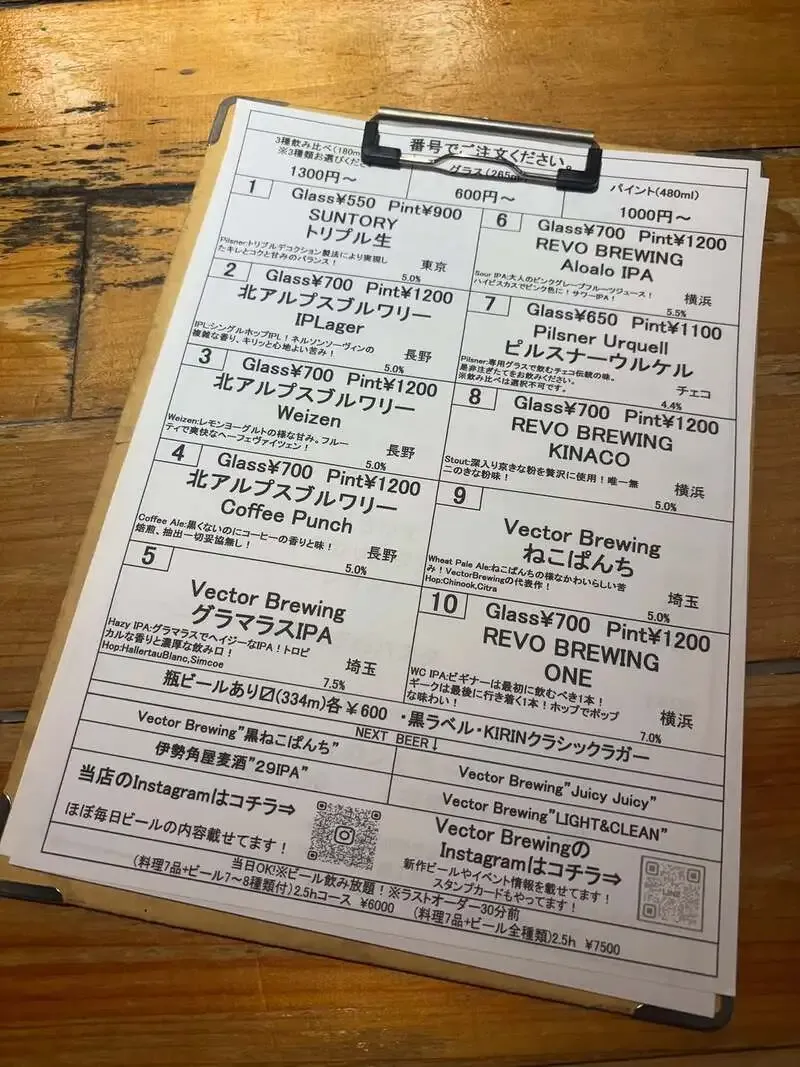 番号でご注文ください。
3種飲み比べ(180m
※3種類お選びくだ
1300円～
グラス(265m
600円～
パイント(480ml)
1000円～
1
Glass¥550 Pint¥900
SUNTORY
トリプル生
Pilsner:トリプルデコクション製法により実現し
たキレとコクと甘みのバランス！
東京
5.0%
2
Glass¥700 Pint¥1200
北アルプスブルワリー
IPLager
IPL:シングルホップIPL！ネルソンソーヴィンの
複雑な香り、キリッと心地よい苦み！
長野
5.0%
3
Glass¥700 Pint¥1200
北アルプスブルワリー
Weizen
Weizen:レモンヨーグルトの様な甘み。フルー
ティで爽快なヘーフェヴァイツェン！
長野
5.0%
4
Glass¥700 Pint¥1200
北アルプスブルワリー
Coffee Punch
Coffee Ale:黒くないのにコーヒーの香りと味！
焙煎、抽出一切妥協無し！
長野
5.0%
5
Vector Brewing
グラマラスIPA
Hazy IPA:グラマラスでヘイジーなIPA！トロピ
カルな香りと濃厚な飲み口！
Hop:HallertauBlanc,Simcoe
埼玉
7.5%
6
Glass¥700 Pint¥1200
REVO BREWING
Aloalo IPA
Sour IPA:大人のピンクグレープフルーツジュース！
ハイビスカスでピンク色に！サワーIPA！
横浜
5.5%
7
Glass¥650 Pint¥1100
Pilsner Urquell
ピルスナーウルケル
Pilsner:専用グラスで飲むチェコ伝統の味。
是非注ぎたてをお飲みください。
※飲み比べは選択不可です。
チェコ
4.4%
8
Glass¥700 Pint¥1200
REVO BREWING
KINACO
Stout:深入り京きな粉を贅沢に使用！唯一無
二のきな粉味！
横浜
5.0%
9
Vector Brewing
ねこぱんち
Wheat Pale Ale:ねこぱんちの様なかわいらしい苦
み！VectorBrewingの代表作！
Hop:Chinook,Citra
埼玉
5.0%
10
Glass¥700 Pint¥1200
REVO BREWING
ONE
WC IPA:ビギナーは最初に飲むべき1本！
ギークは最後に行き着く1本！ホップでポップ
な味わい！
横浜
7.0%
瓶ビールあり〼(334m)各￥600 ・黒ラベル・KIRINクラシックラガー
NEXT BEER↓
Vector Brewing"黒ねこぱんち"
Vector Brewing"Juicy Juicy"
伊勢角屋麦酒"29IPA"
Vector Brewing"LIGHT&CLEAN"
当店のInstagramはコチラ⇒
ほぼ毎日ビールの内容載せてます！
Vector Brewingの
Instagramはコチラ⇒
新作ビールやイベント情報を載せてます！
スタンプカードもやってます！
LINE
当日OK!※ビール飲み放題！※ラストオーダー30分前
(料理7品+ビール7～8種類付)2.5hコース ¥6000 (料理7品+ビール全種類)2.5h ¥7500